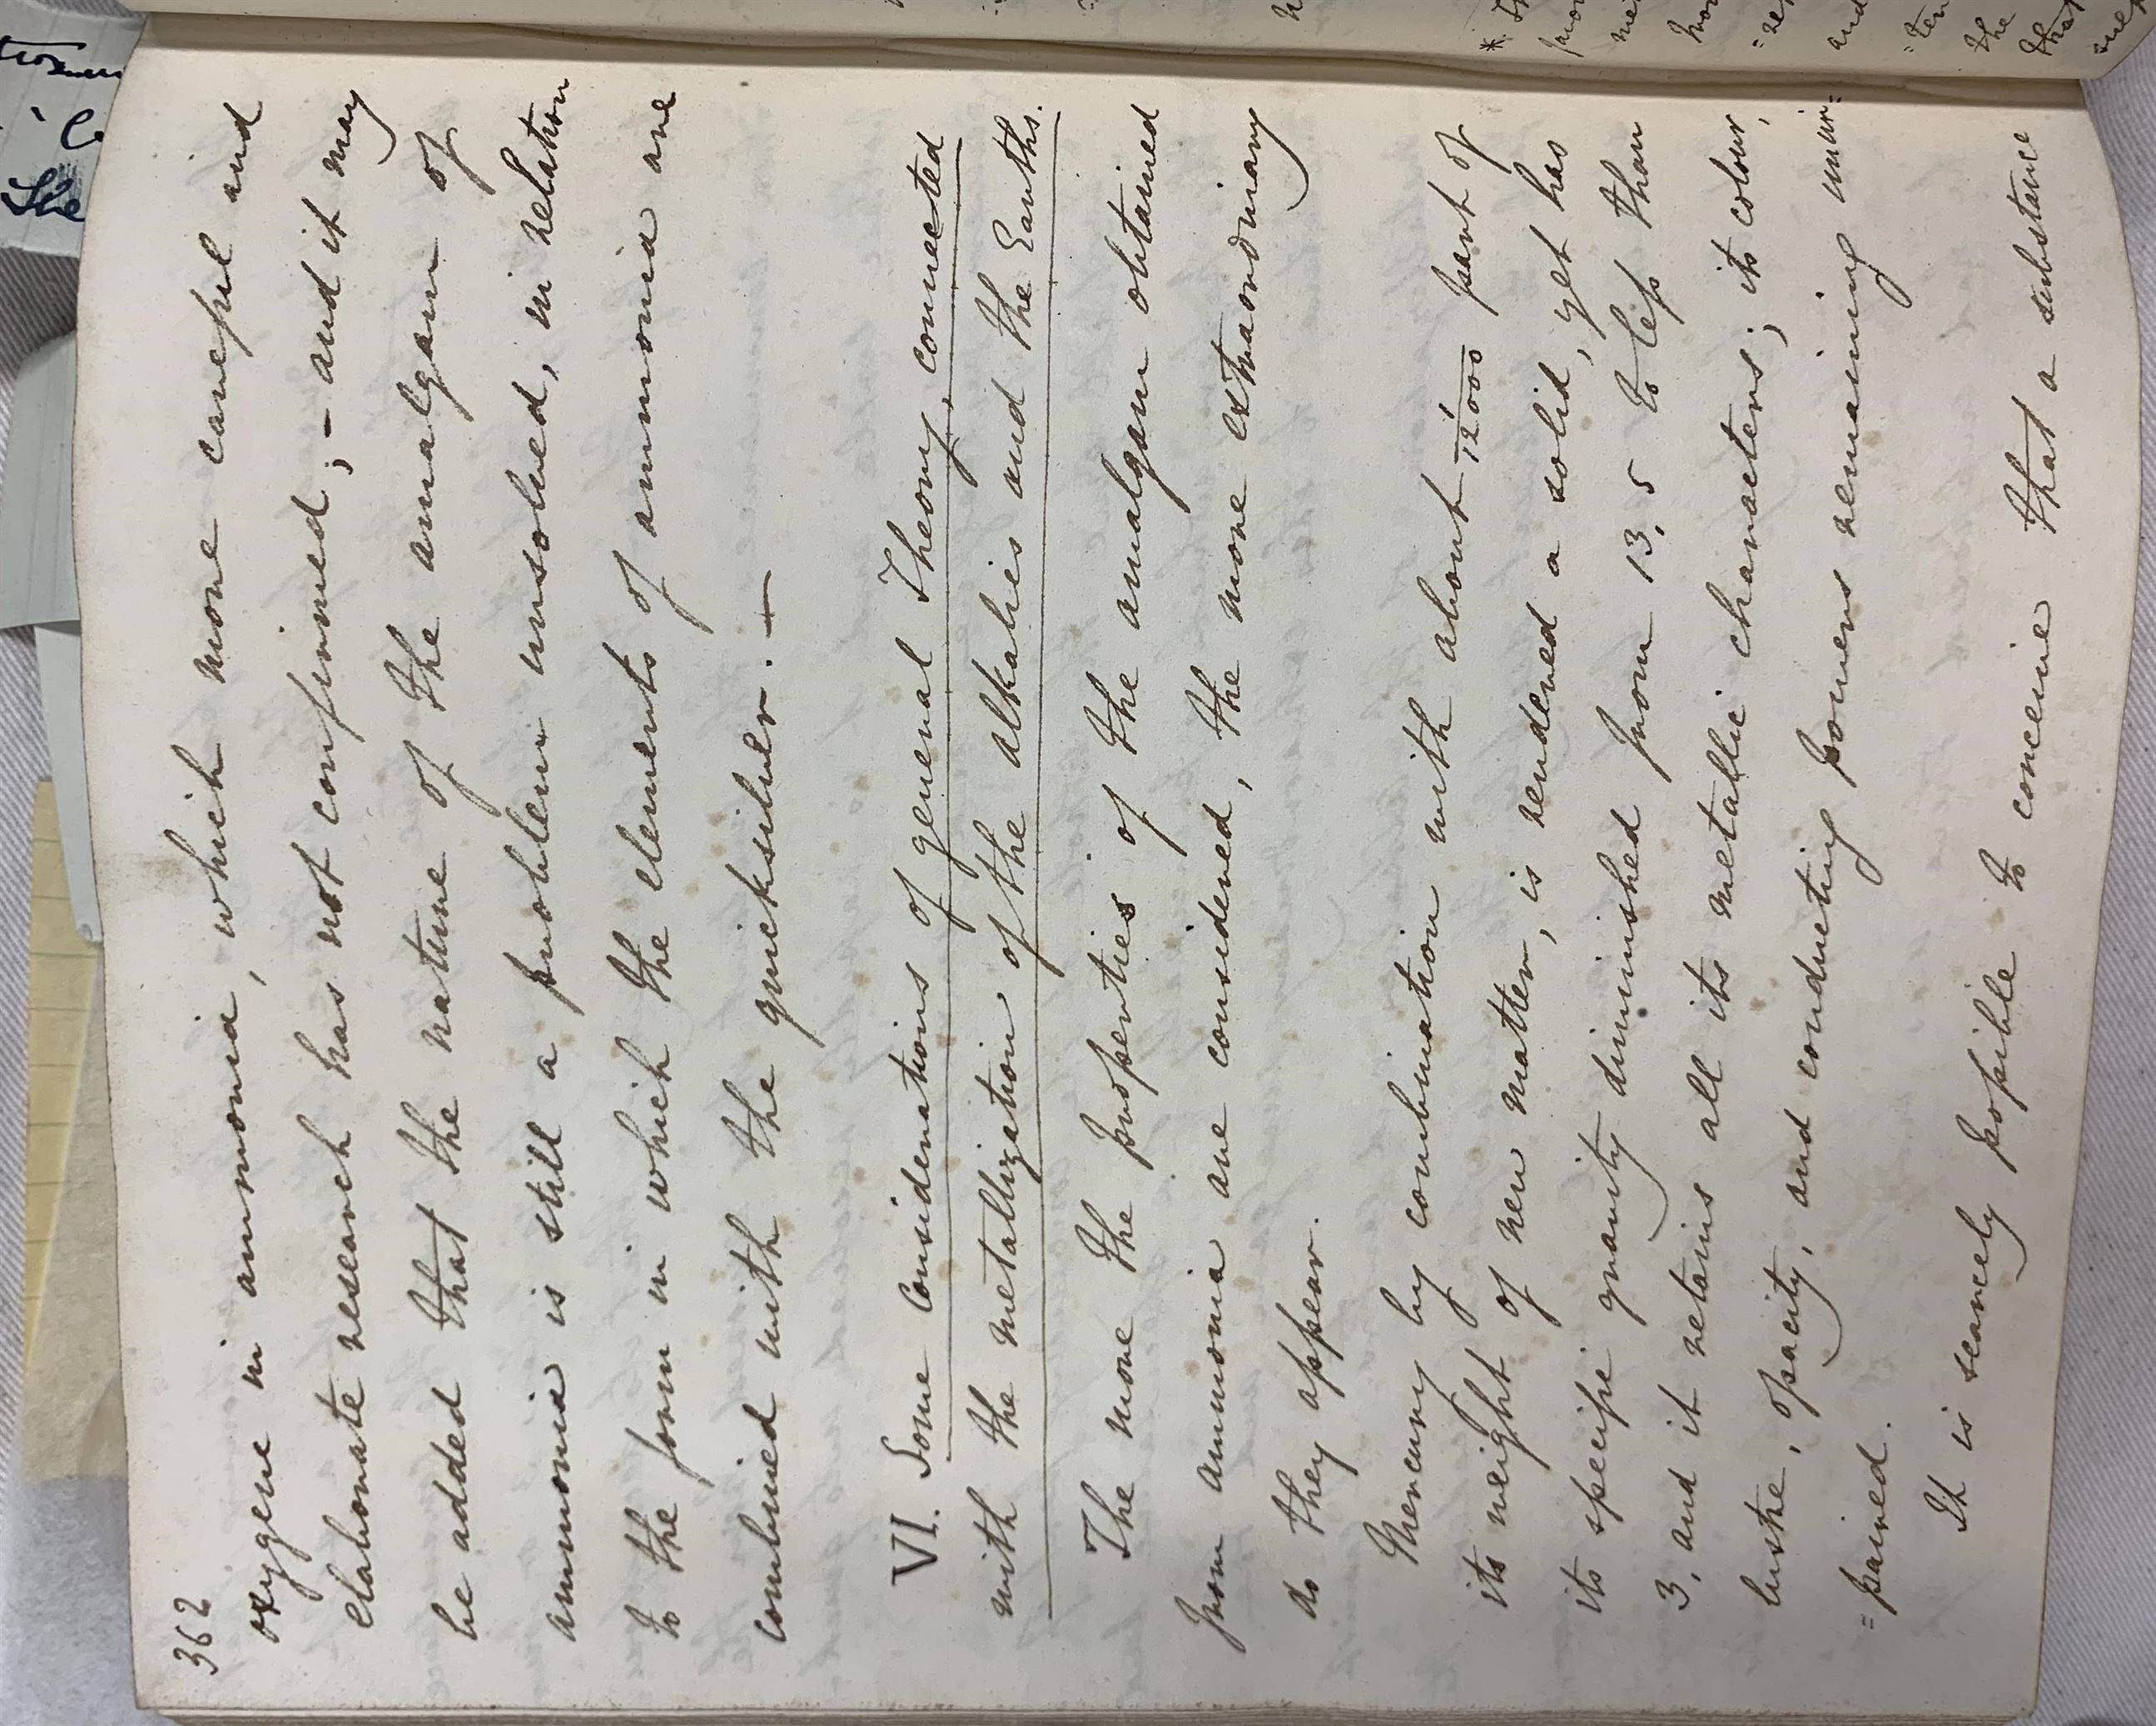 362
oxygene in ammonia, which more careful and
elaborate research has not confirmed; - and it may
be added that the nature of the amalgam of
ammonia is still a problem unsolved, in relation
to the form in which the elements of ammonia are
combined with the quicksilver. —
VI. Some Considerations of general Theory, connected
with the metallization of the alkalies and the Earths.
The more the properties of the amalgam obtained
from ammonia are considered, the more extraordinary
do they appear.
Mercury by combination with about 1/12000 part of
its weight of new matter, is rendered a solid, yet has
its specific gravity diminished from 13,5 to less than
3, and it retains all its metallic characters; its colour,
lustre, opacity, and conducting powers remaining unim=
=paired.
It is scarcely possible to conceive that a substance
The
the
that